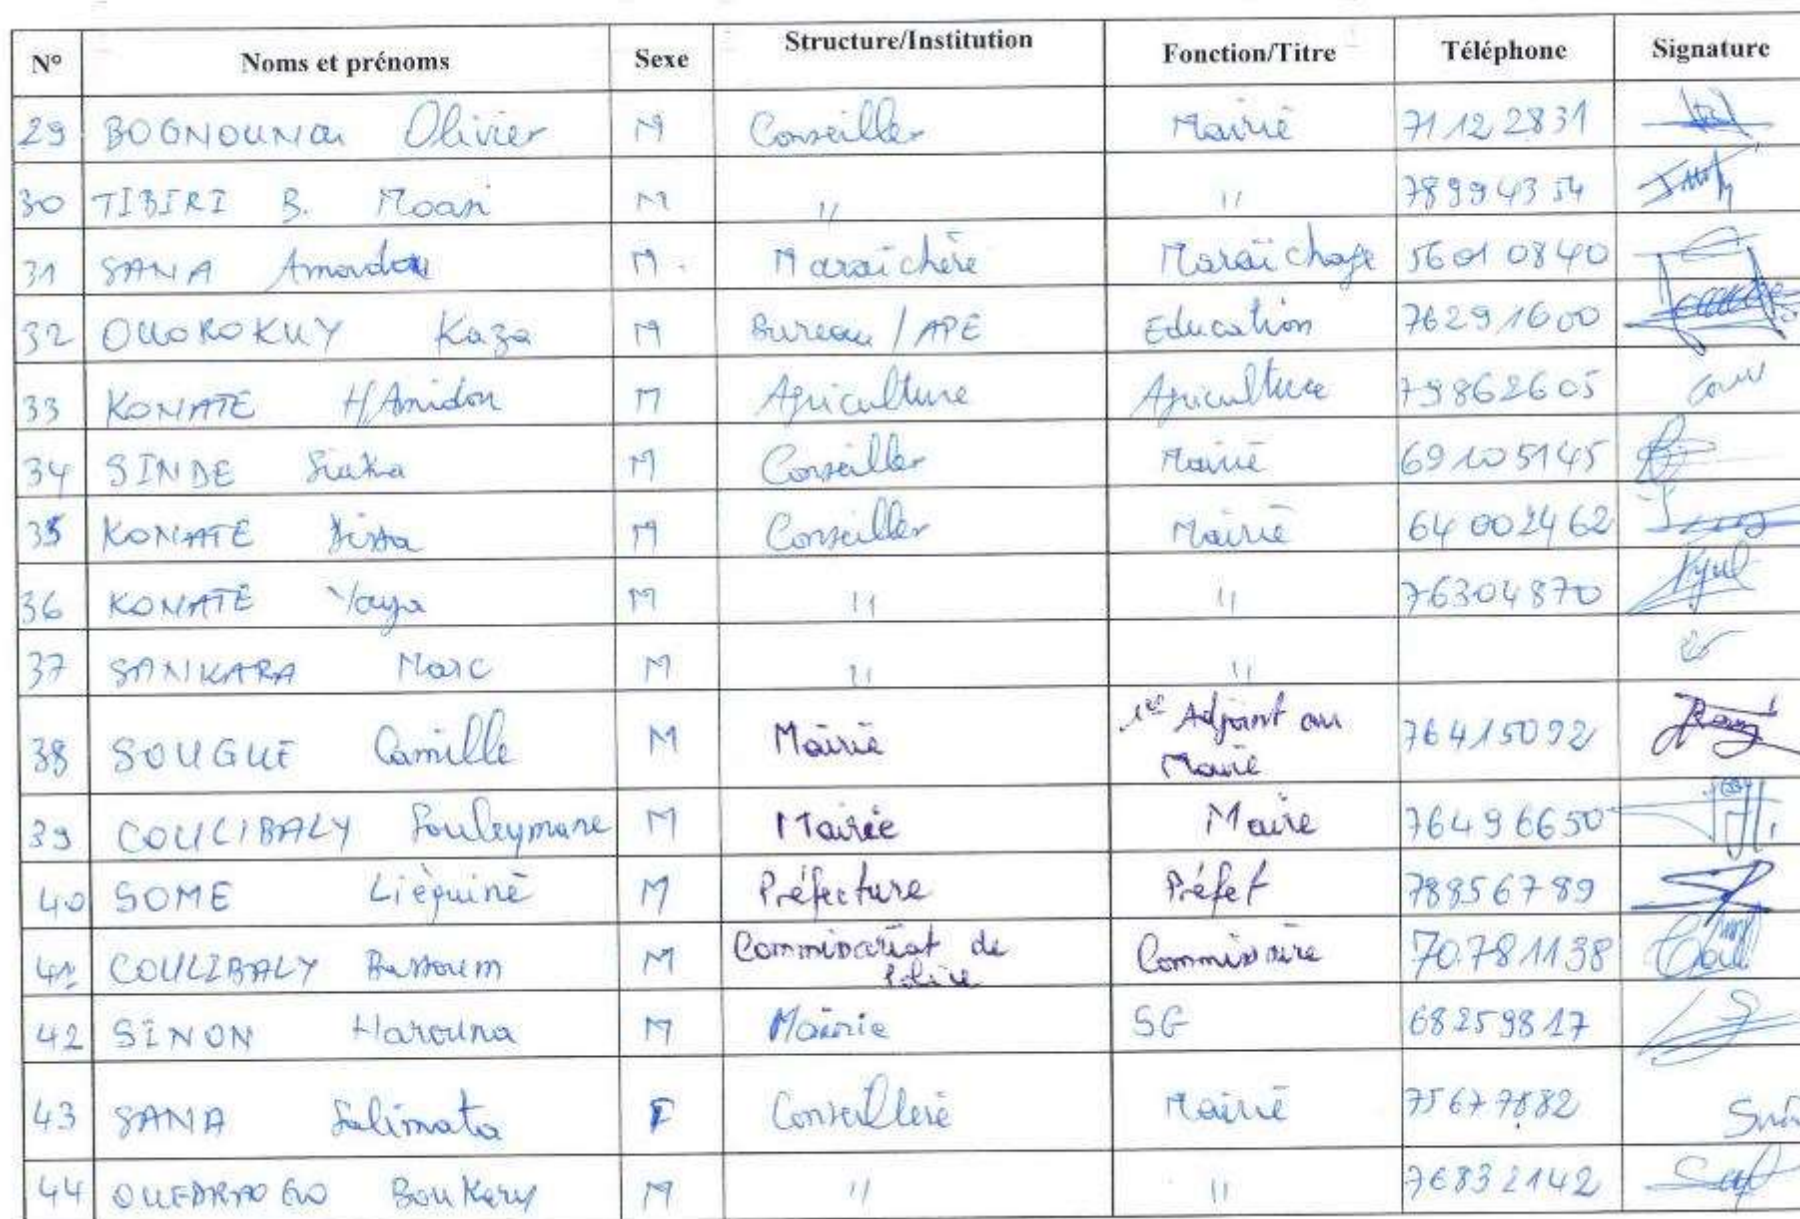 N° Noms et prénoms Sexe Structure/Institution Fonction/Titre Téléphone Signature
29 BOGNOUNOU Olivier M Conseiller Mairie 71122831
30 TIBIRI B. Moasi M " " 78994354
31 SANA Amadou M. Maraîchère Maraîchage 56010840
32 OUOROKUY Kaza M Bureau / APE Education 76291600
33 KONATE H/Amidou M Agriculture Agriculture 79862605
34 SINDE Siaka M Conseiller Mairie 69105145
35 KONATE Issa M Conseiller Mairie 64002462
36 KONATE Yaya M " " 76304870
37 SANKARA Marc M " "
38 SOUGUE Camille M Mairie 1er Adjoint au
Maire 76415092
39 COULIBALY Souleymane M Mairie Maire 76496650
40 SOME Lièquinè M Préfecture Préfet 78856789
41 COULIBALY Bassoum M Commissariat de
Police Commissaire 70781138
42 SINON Harouna M Mairie SG 68259817
43 SANA Salimata F Conseillère Mairie 75677882
44 OUEDRAOGO Boukary M " " 76832142